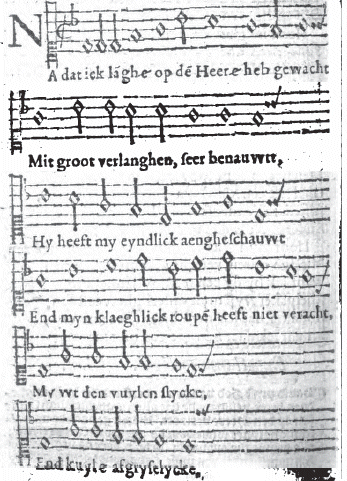 NA dat ick lãghe op dẽ Heere heb gewacht
Mit groot verlanghen, seer benauwtt,
Hy heeft my eyndlick aengheschauwt
End myn klaeghlick roupẽ heeft niet veracht,
My wt den vuylen slycke,
End kuyle afgryselycke,